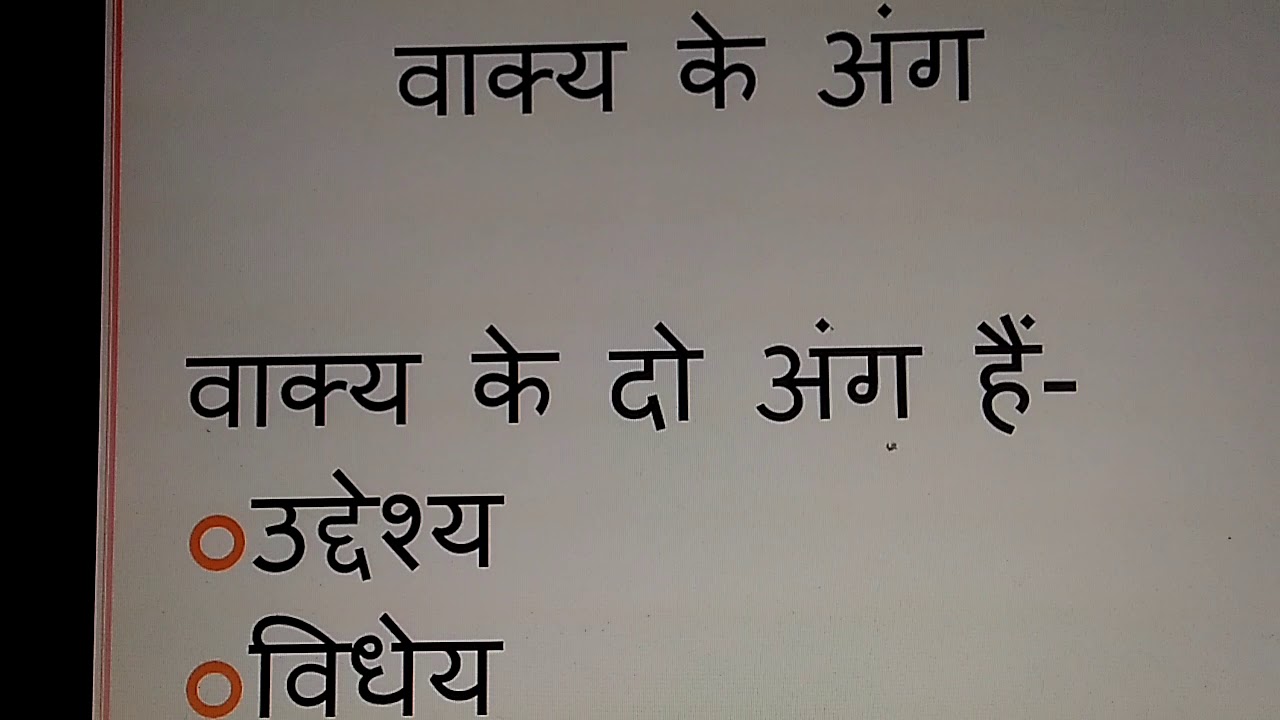 वाक्य के अंग
वाक्य के दो अंग हैं-
उद्देश्य
विधेय